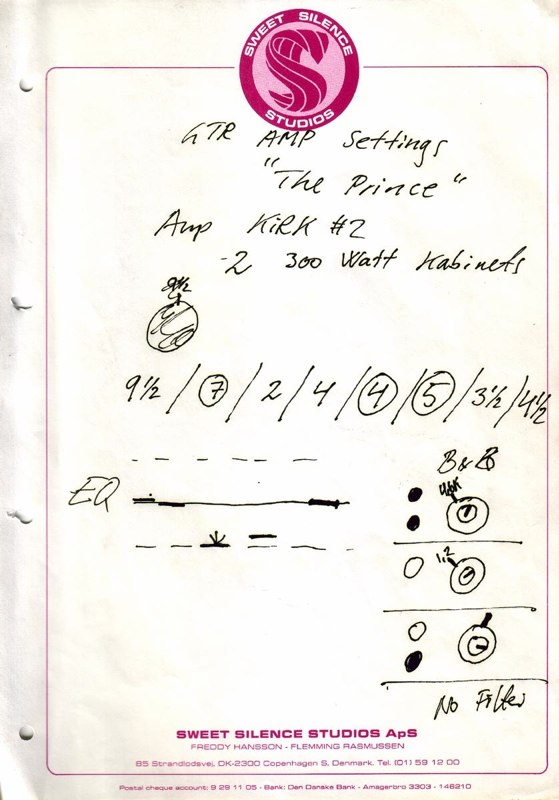 SWEET SILENCE
STUDIOS
GTR AMP Settings
"The Prince"
Amp KiRK #2
-2 300 Watt Kabinets
9½
9½ / 7 / 2 / 4 / 4 / 5 / 3½ / 4½
EQ
B&B
1,2
No Filter
SWEET SILENCE STUDIOS ApS
FREDDY HANSSON - FLEMMING RASMUSSEN
85 Strandlodsvej, DK-2300 Copenhagen S, Denmark. Tel. (01) 59 12 00
Postal cheque account: 9 29 11 05 - Bank: Den Danske Bank - Amagerbro 3303 - 146210